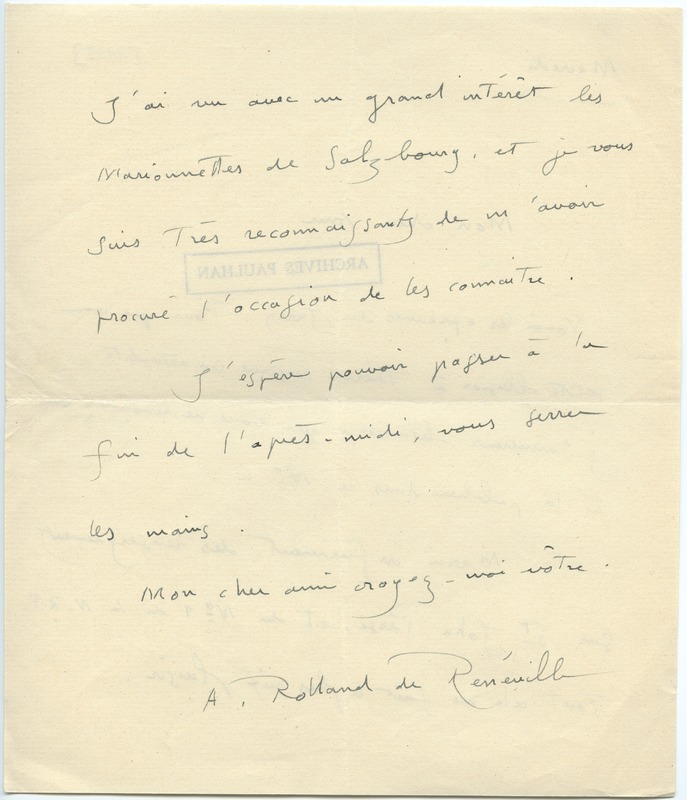 J'ai vu avec un grand intérêt les
Marionnettes de Salzbourg, et je vous
suis très reconnaissant de m'avoir
ARCHIVES PAULHAN
procuré l'occasion de les connaître.
J'espère pouvoir passer à la
fin de l'après-midi, vous serrer
les mains.
Mon cher ami croyez-moi vôtre.
A. Rolland de Renéville